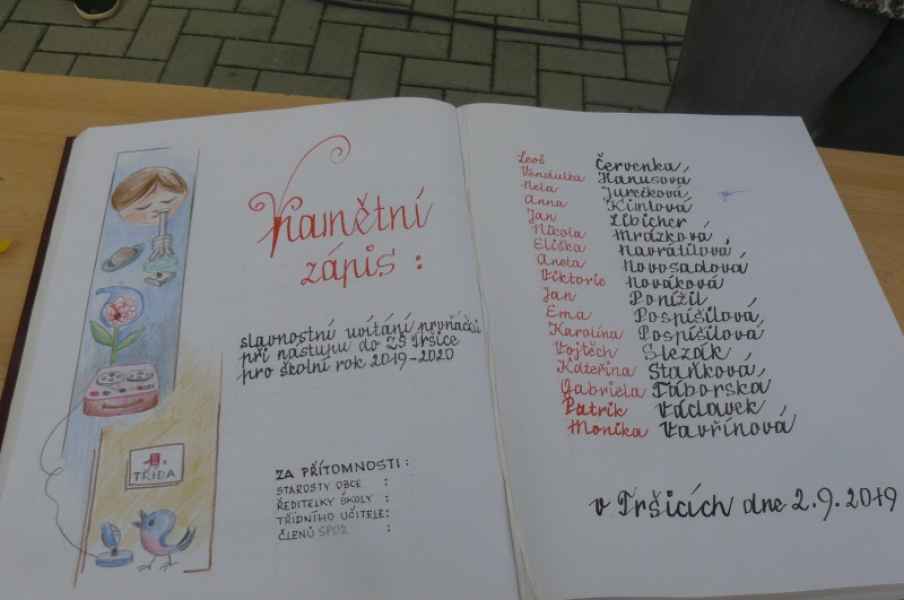 Pamětní
zápis :
slavnostní uvítání prvňáčků
při nástupu do ZŠ Tršice
pro školní rok 2019-2020
1.
TŘÍDA
ZA PŘÍTOMNOSTI :
STAROSTY OBCE :
ŘEDITELKY ŠKOLY :
TŘÍDNÍHO UČITELE :
ČLENŮ SPOZ :
Leoš Červenka,
Vendulka Hanusová
Nela Jurečková
Anna Kimlová
Jan Libicher,
Nikola Mrázková,
Eliška Navrátilová
Aneta Novosadová
Viktorie Nováková
Jan Ponížil
Ema Pospíšilová,
Karolína Pospíšilová
Vojtěch Slezák,
Kateřina Staňková,
Gabriela Táborská
Patrik Václavek
Monika Vavřínová
v Tršicích dne 2.9.2019